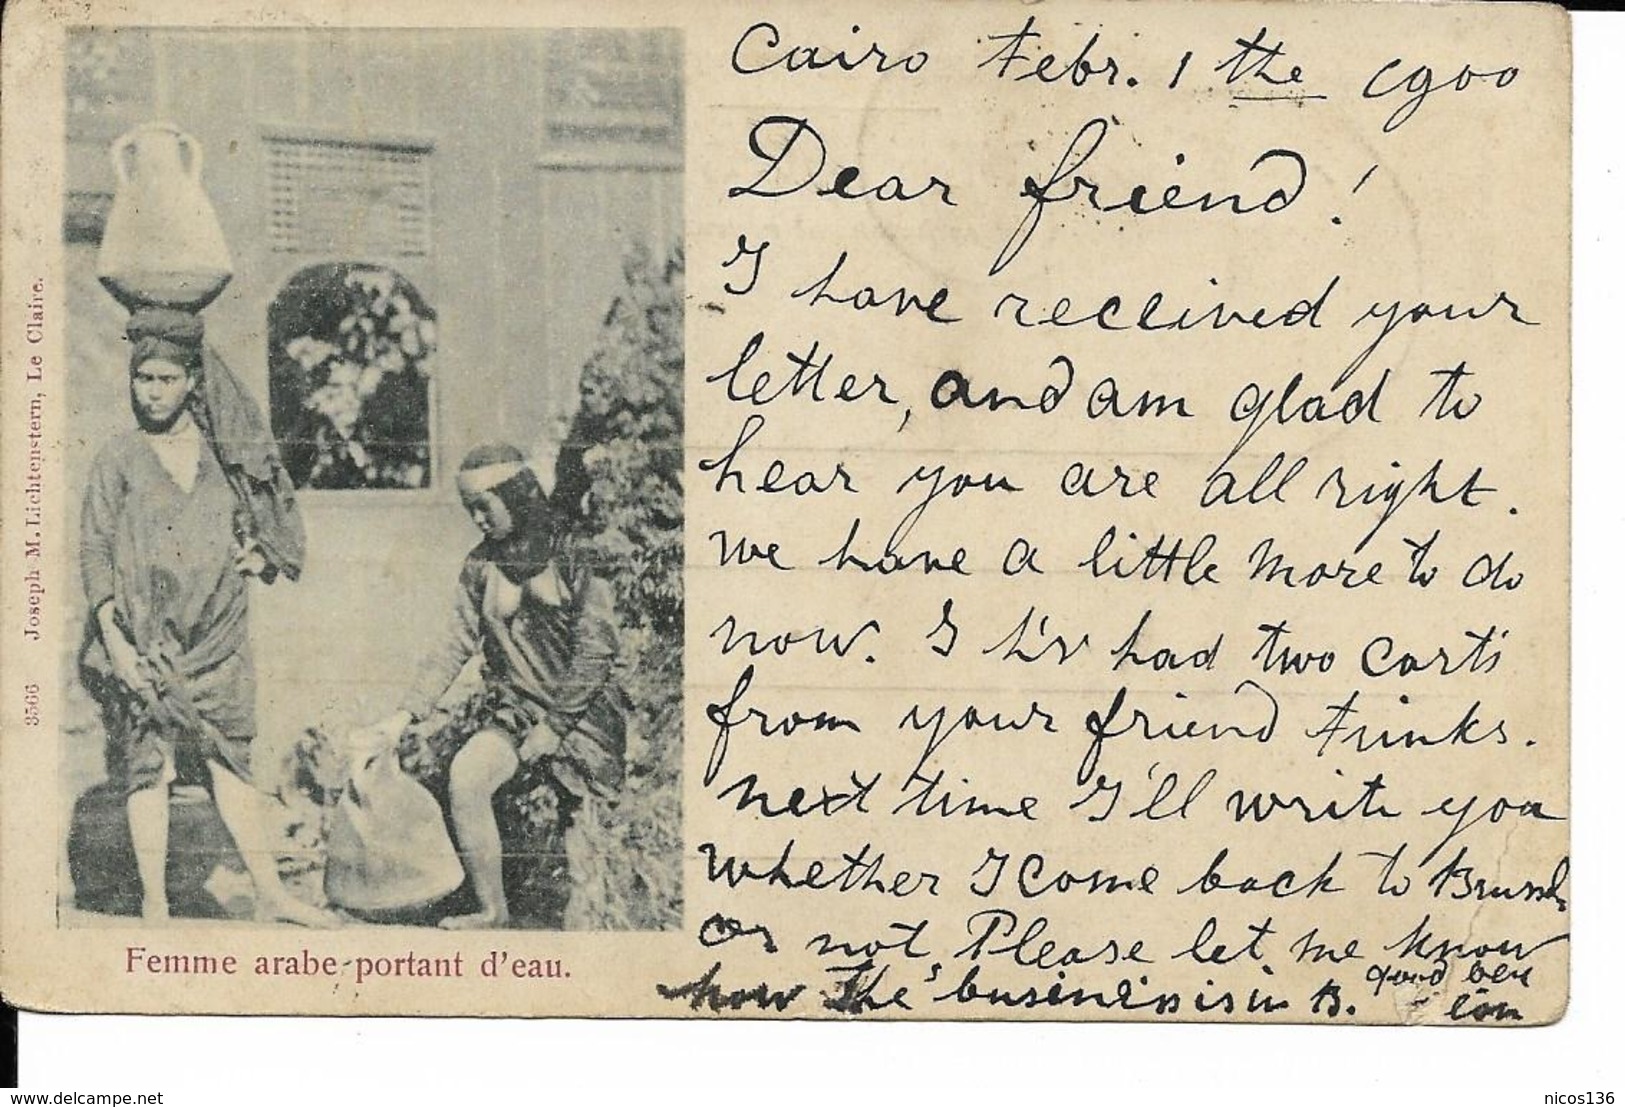 Cairo Febr. 1 the 1900
Dear friend!
I have received your
letter, and am glad to
hear you are all right.
We have a little more to do
now. I h'v had two cart's
from your friend Funks.
next time I'll write you
whether I come back to Brussels
or not, Please let me know
how the business is in B. good bye
Femme arabe portant d'eau.
3566 Joseph M. Lichtenstern, Le Claire.
www.delcampe.net
nicos136